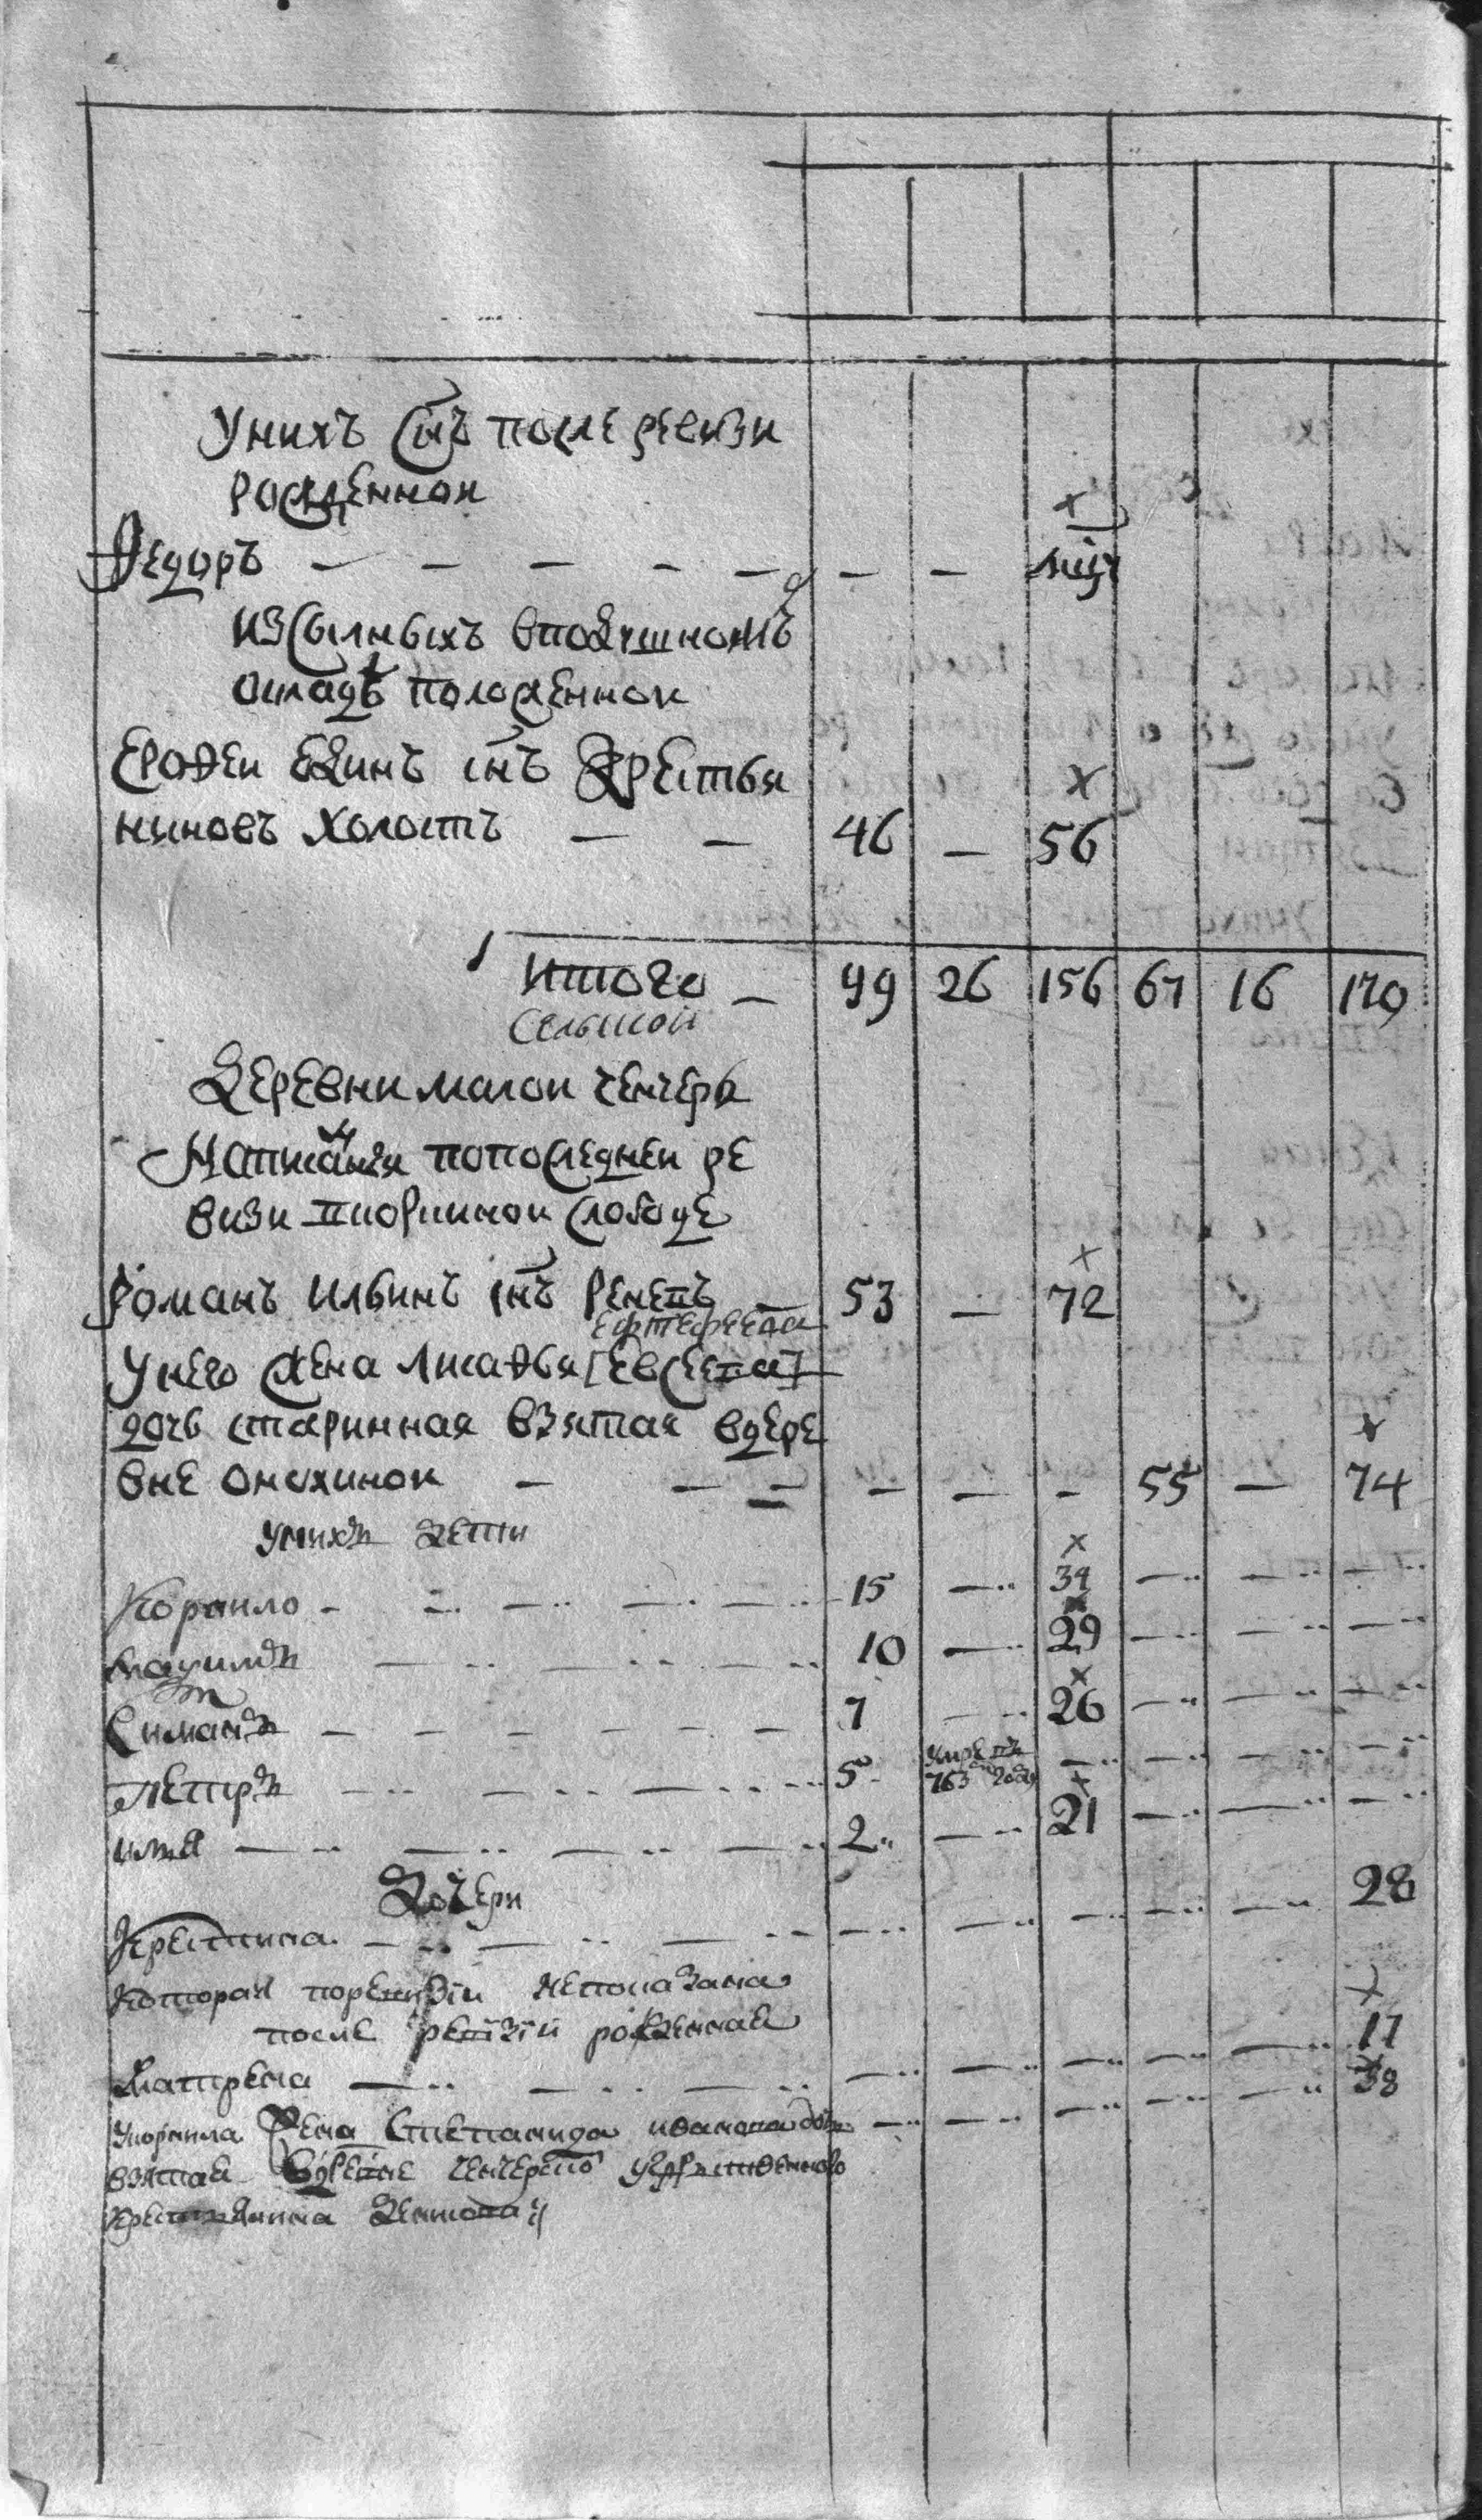 У нихъ снъ после ревизи
рожденнои
Федоръ — — — — — — —
изсылныхъ вподушномъ
окладѣ положеннои
Ерофеи Единъ снъ Крестья
ниновъ холостъ — — 46 — 56
Итого — 49 26 156 67 16 170
Селькой
Деревни малои Ченчеры
Написания попоследнеи ре
визи слободе
Романъ Ильинъ снъ — 53 — 72
У него жена Агафья [Евсеева]
дочь старинная взятая вдере
вне онохинои — — — — — — 55 — 74
у нихъ дети
Корнило — 15 — 34 — — —
10 — 29 — — —
Симанъ — 7 — 26 — — —
Петръ — 5 умре въ 763 году — — — —
илья — 2 — 21 — — —
Дочери
Крестина — — — — — — 28
которая поревизіи непоказана
после ревизіи рожденная
Матрена — — — — — — 17
У корнила Жена Степанида иванова дочь — — — — — 38
взятая вдревне ченчерево
крестьянина